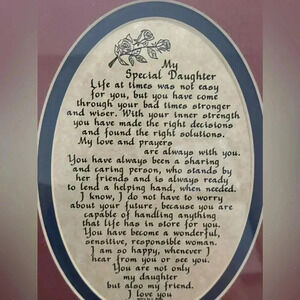 My
Special Daughter
Life at times was not easy
for you, but you have come
through your bad times stronger
and wiser. With your inner strength
you have made the right decisions
and found the right solutions.
My love and prayers
are always with you.
You have always been a sharing
and caring person, who stands by
her friends and is always ready
to lend a helping hand, when needed.
I know, I do not have to worry
about your future, because you are
capable of handling anything
that life has in store for you.
You have become a wonderful,
sensitive, responsible woman.
I am so happy, whenever I
hear from you or see you.
You are not only
my daughter
but also my friend.
I love you